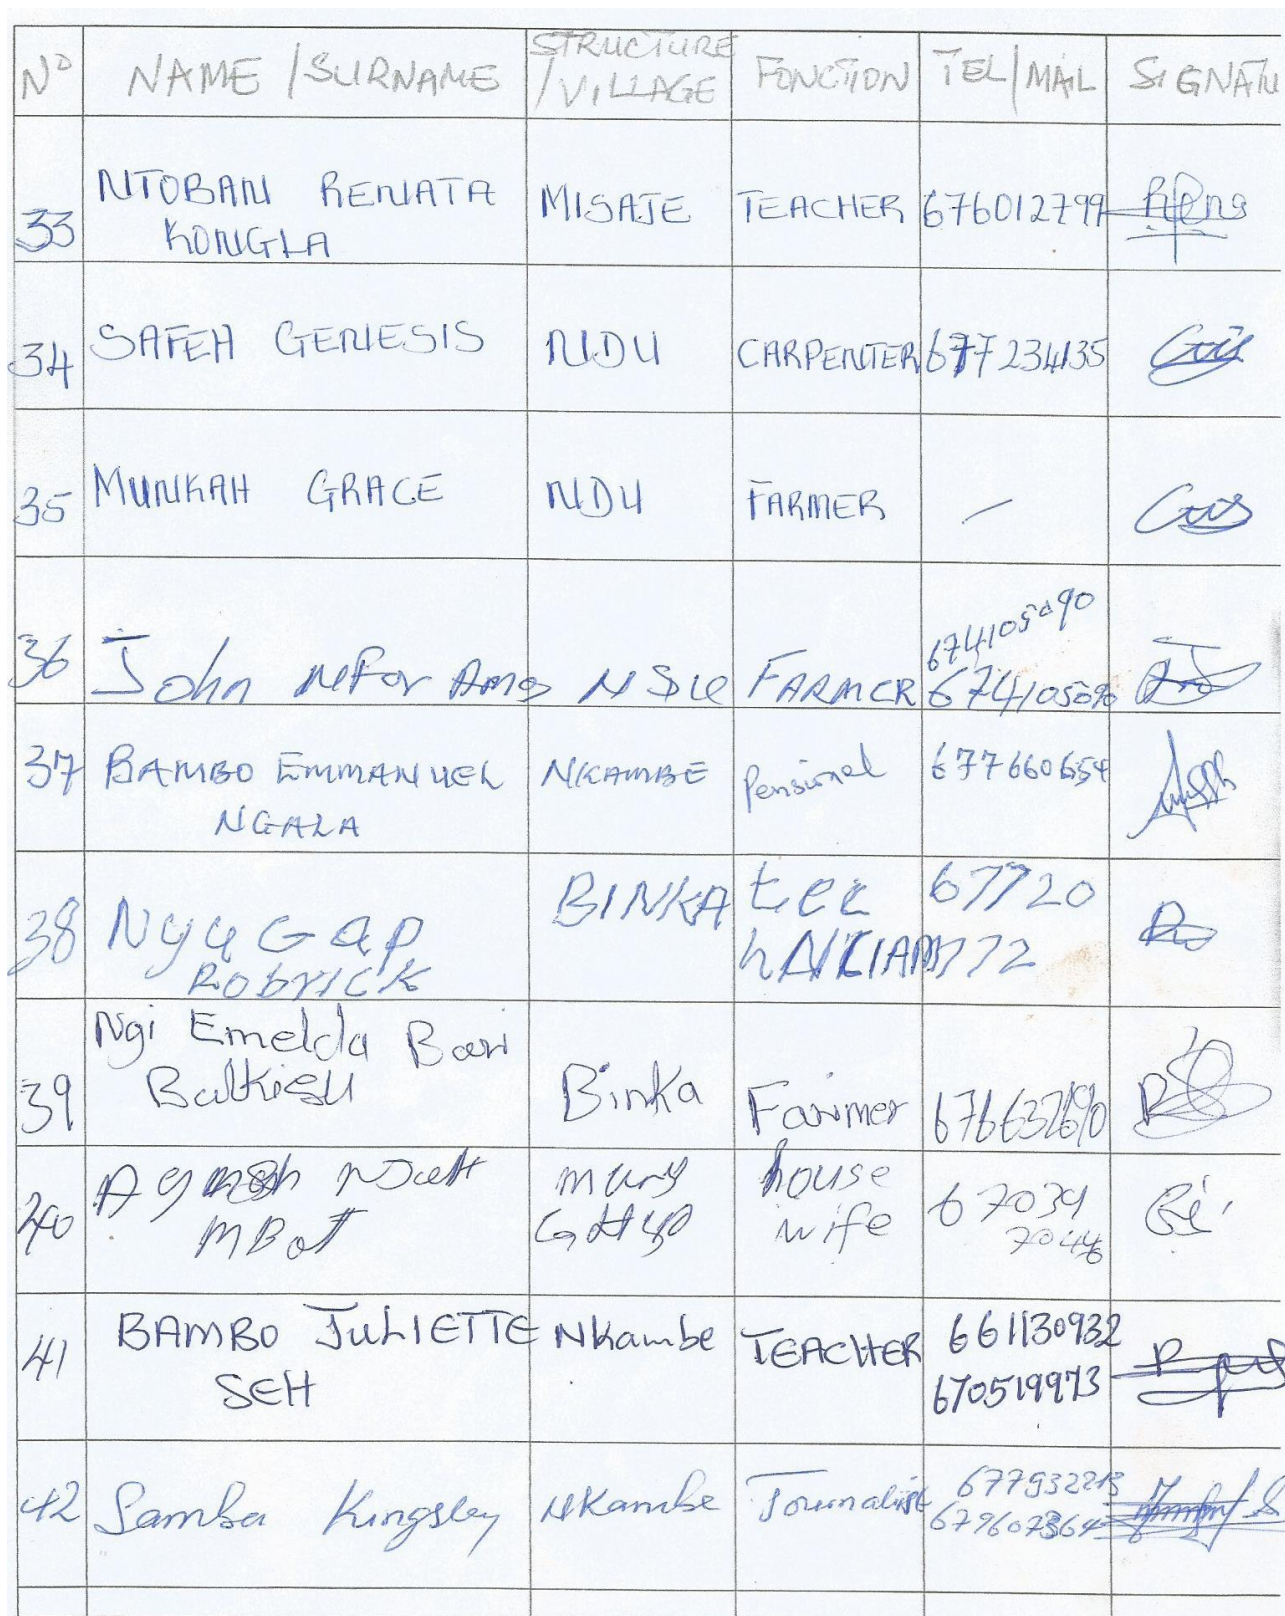 N° NAME / SURNAME STRUCTURE / VILLAGE FONCTION TEL / MAIL SIGNATU
33 NTOBAN RENATA KONGLA MISAJE TEACHER 676012799
34 SAFEH GENESIS NDU CARPENTER 677234135
35 MUNKAH GRACE NDU FARMER /
36 John NFor FARMER 674105090
37 BAMBO EMMANUEL NGALA NKAMBE Pensional 677660654
38 NyuGap RObrICK BINKA 67720
39 Ngi Emelda Bari Balkisu Binka Farmer
40 house wife 67039 7046
41 BAMBO JULIETTE SEH Nkambe TEACHER 661130932 670519973
42 Samba Kingsley NKambe Journalist 677932213 679607364